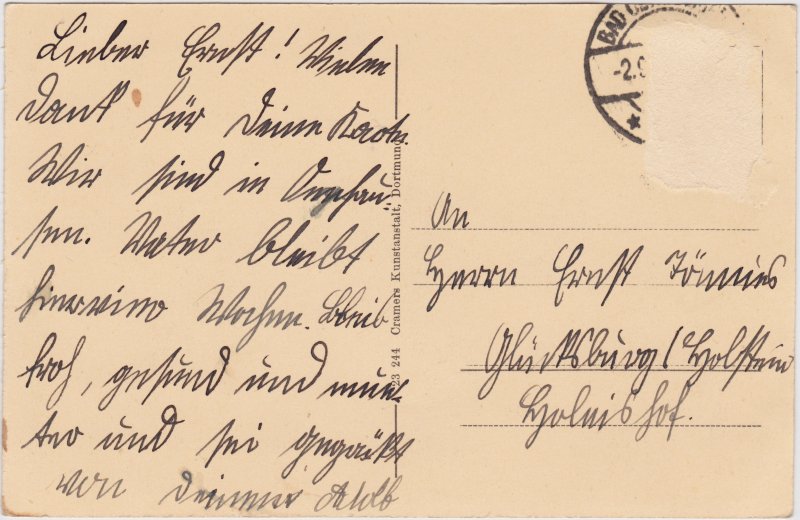 Lieber Ernst! Vielen
Dank für Deine Karte.
Wir sind in Oeynhau-
sen. Vater bleibt
hier vier Wochen. Bleib
froh, gesund und mun-
ter und sei gegrüßt
von Deinem
23 244 Cramers Kunstanstalt, Dortmund
BAD
-2.9
An
Herrn Ernst Tönnies
Glücksburg / Holstein
Holnishof.